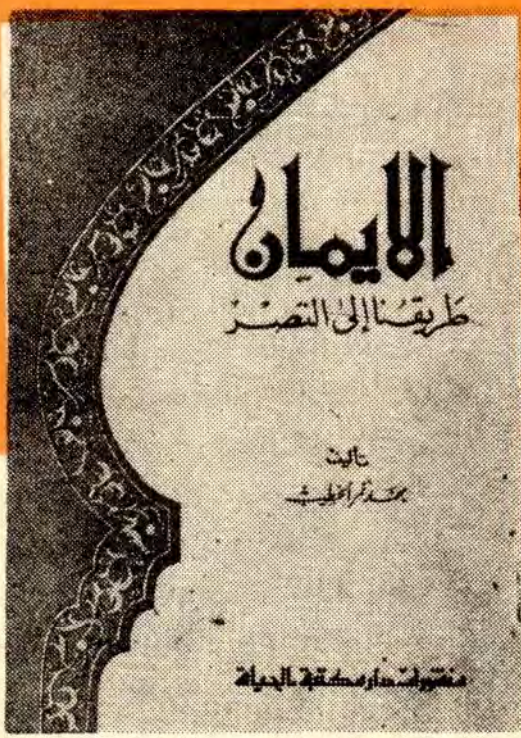 الايمان
طريقنا إلى النصر
تأليف
محمد نمر الخطيب
منشورات دار مكتبة الحياة